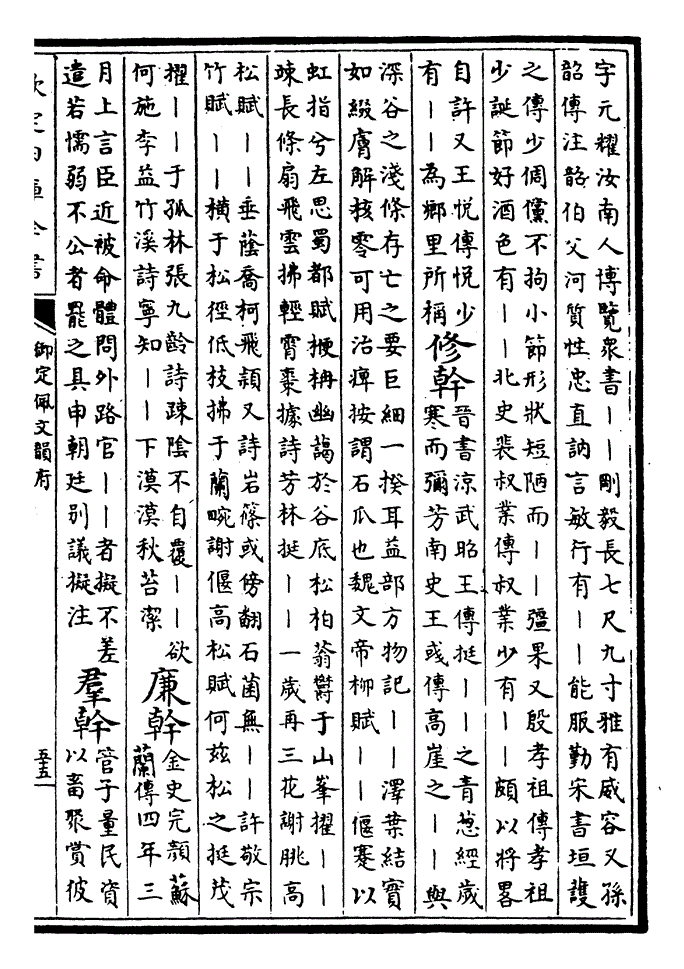 字元耀汝南人博覽衆書丨丨剛毅長七尺九寸雅有威容又孫
韶傳注韶伯父河質性忠直訥言敏行有丨丨能服勤宋書垣護
之傳少倜儻不拘小節形狀短陋而丨丨彊果又殷孝祖傳孝祖
少誕節好酒色有丨丨北史裴叔業傳叔業少有丨丨頗以將畧
自許又王悦傳悦少
有丨丨為鄉里所稱
修幹
晉書涼武昭王傳挺丨丨之青葱經歲
寒而彌芳南史王彧傳高崖之丨丨與
深谷之淺條存亡之要巨細一揆耳益部方物記丨丨澤葉結實
如綴膚解核零可用治痺按謂石瓜也魏文帝柳賦丨丨偃蹇以
虹指兮左思蜀都賦楩枏幽藹於谷底松柏蓊鬱于山峯擢丨丨
竦長條扇飛雲拂輕霄棗據詩芳林挺丨丨一歲再三花謝朓高
松賦丨丨垂蔭喬柯飛穎又詩岩篠或傍翻石菌無丨丨許敬宗
竹賦丨丨橫于松徑低枝拂于蘭畹謝偃高松賦何兹松之挺茂
擢丨丨于孤林張九齡詩疎陰不自覆丨丨欲
何施李益竹溪詩寧知丨丨下漠漠秋苔潔
廉幹
金史完顔蘇
蘭傳四年三
月上言臣近被命體問外路官丨丨者擬不差
遣若懦弱不公者罷之具申朝廷别議擬注
羣幹
管子量民資
以畜聚賞彼
欽定四庫全書
御定佩文韻府
五五